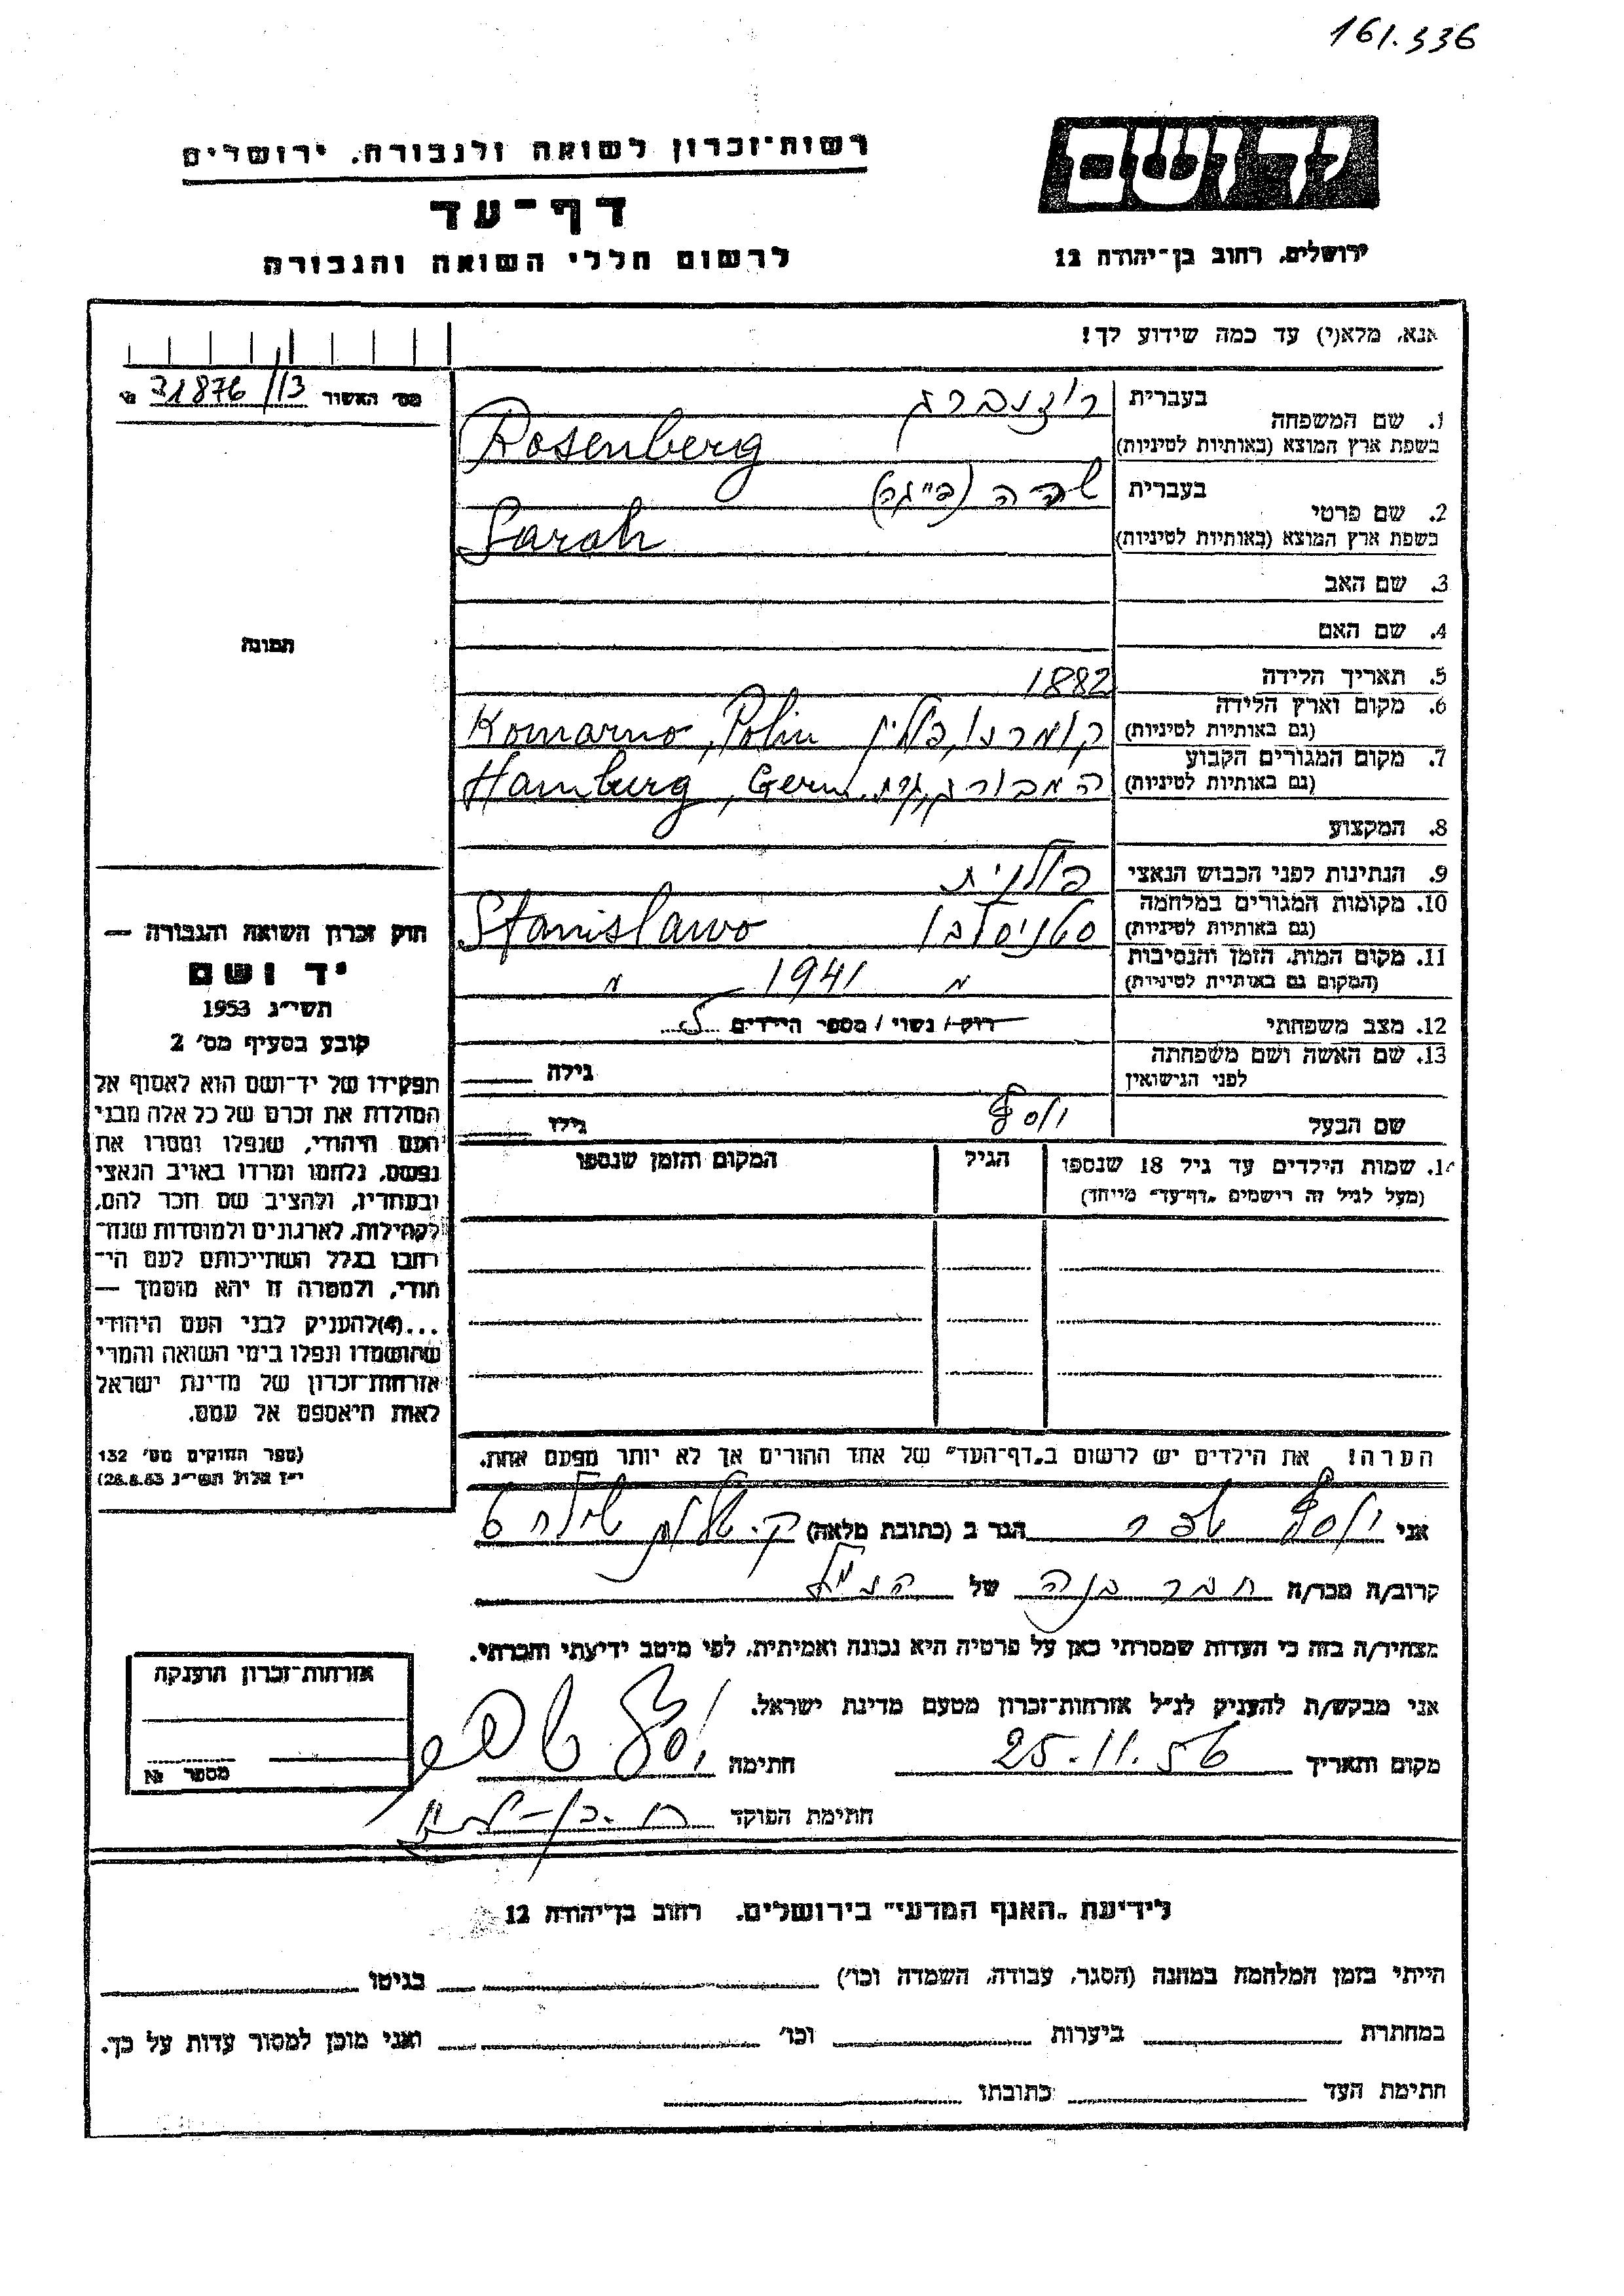 161.336
רשות־זכרון לשואה ולגבורה, ירושלים
דף־עד
לרשום חללי השואה והגבורה
יד ושם
ירושלים, רחוב בן־יהודה 12
אנא, מלא(י) עד כמה שידוע לך!
מס׳ האשור 31876/13
1. שם המשפחה
בעברית רוזנברג
בשפת ארץ המוצא (באותיות לטיניות) Rosenberg
2. שם פרטי
בעברית שרה
בשפת ארץ המוצא (באותיות לטיניות) Sarah
3. שם האב
4. שם האם
תמונה
5. תאריך הלידה 1882
6. מקום וארץ הלידה
(גם באותיות לטיניות) קומרנו, פולין Komarno, Polin
7. מקום המגורים הקבוע
(גם באותיות לטיניות) המבורג, גרמ. Hamburg, Germ.
8. המקצוע
9. הנתינות לפני הכבוש הנאצי פולנית
10. מקומות המגורים במלחמה
(גם באותיות לטיניות) סטניסלבו Stanislawo
11. מקום המות, הזמן והנסיבות
(המקום גם באותיות לטיניות) " 1941 "
12. מצב משפחתי רוק / נשוי / מספר הילדים
13. שם האשה ושם משפחתה
לפני הנישואין גילה
שם הבעל יוסף גילו
14. שמות הילדים עד גיל 18 שנספו
(מעל לגיל זה רישמים „דף־עד״ מייחד)
הגיל
המקום והזמן שנספו
חוק זכרון השואה והגבורה —
יד ושם
תשי״ג 1953
קובע בסעיף מס׳ 2
תפקידו של יד־ושם הוא לאסוף אל
המולדת את זכרם של כל אלה מבני
העם היהודי, שנפלו ומסרו את
נפשם, נלחמו ומרדו באויב הנאצי
ובעוזריו, ולהציב שם וזכר להם,
לקהילות, לארגונים ולמוסדות שנח־
רבו בגלל השתייכותם לעם הי־
הודי, ולמטרה זו יהא מוסמך —
...(4)להעניק לבני העם היהודי
שהושמדו ונפלו בימי השואה והמרי
אזרחות־זכרון של מדינת ישראל
לאות היאספם אל עמם.
(ספר החוקים מס׳ 132
י״ז אלול תשי״ג 28.8.53)
הערה! את הילדים יש לרשום ב„דף־העד״ של אחד ההורים אך לא יותר מפעם אחת.
אני יוסף הגר ב (כתובת מלאה)
קרוב/ה מכר/ה חבר בנה של הנ״ל
מצהיר/ה בזה כי העדות שמסרתי כאן על פרטיה היא נכונה ואמיתית, לפי מיטב ידיעתי והכרתי.
אני מבקש/ת להעניק לנ״ל אזרחות־זכרון מטעם מדינת ישראל.
מקום ותאריך 25.11.56 חתימה
חתימת הפוקד
אזרחות־זכרון הוענקה
מספר №
לידיעת „האגף המדעי״ בירושלים, רחוב בן־יהודה 12
הייתי בזמן המלחמה במחנה (הסגר, עבודה, השמדה וכו׳) בגיטו
במחתרת ביערות וכו׳ ואני מוכן למסור עדות על כך.
חתימת העד כתובתו